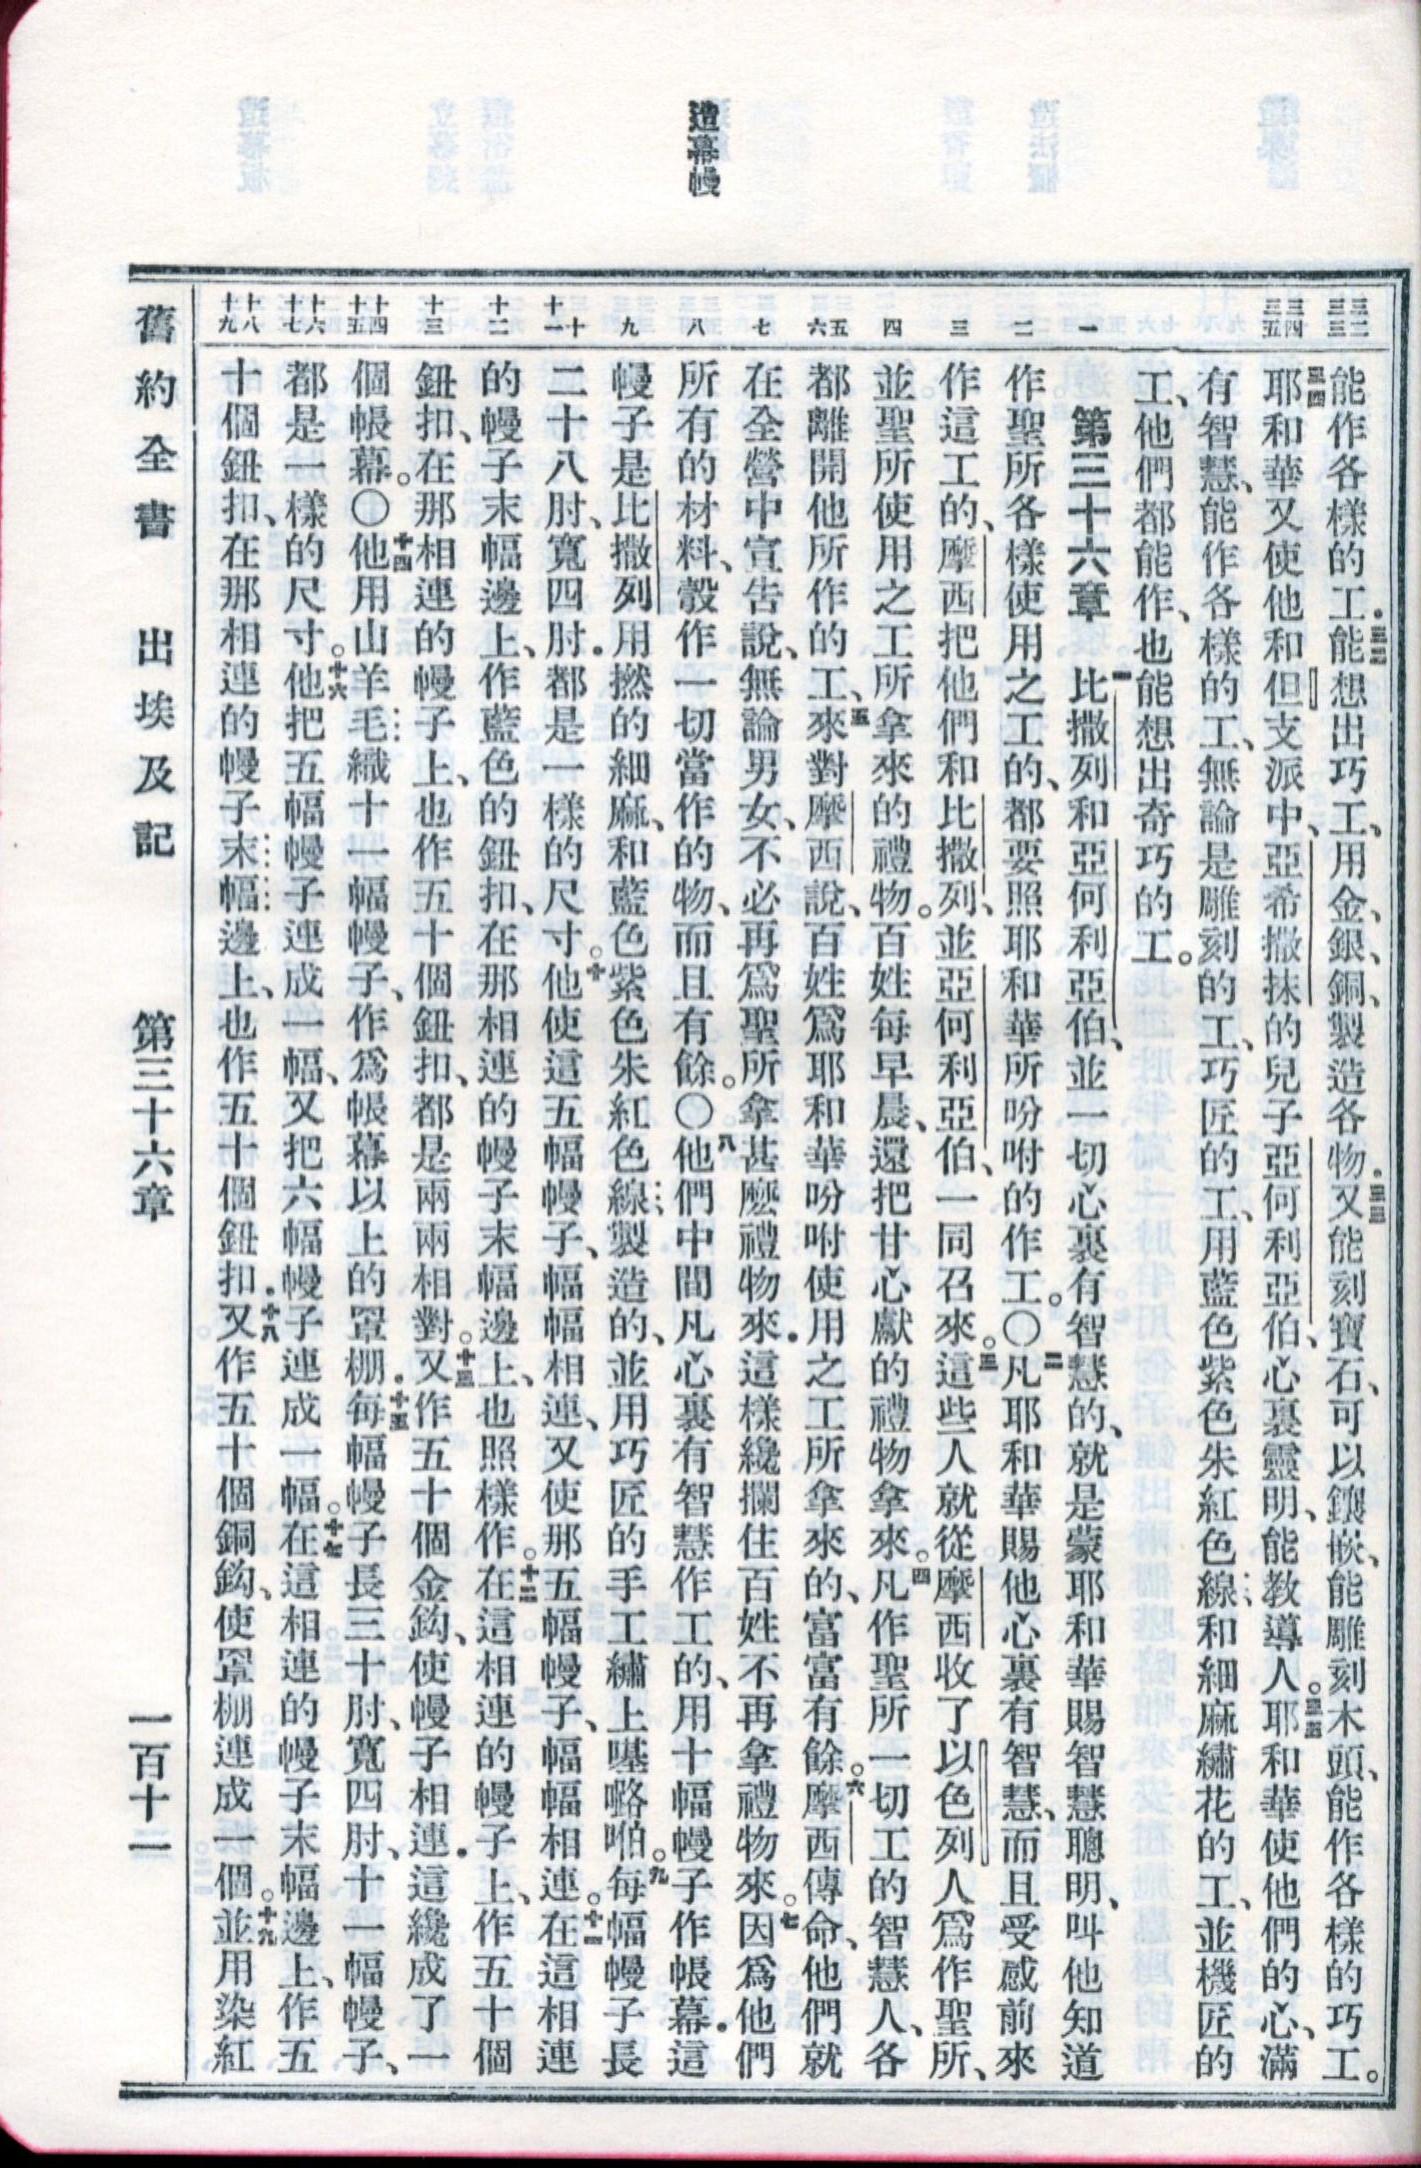 造幕幔
三十二 三十三
能作各樣的工.三十二能想出巧工、用金、銀、銅、製造各物.三十三又能刻寶石、可以鑲嵌、能雕刻木頭、能作各樣的巧工。
三十四 三十五
三十四耶和華又使他和但支派中、亞希撒抹的兒子亞何利亞伯、心裏靈明、能教導人。三十五耶和華使他們的心、滿
有智慧、能作各樣的工、無論是雕刻的工、巧匠的工、用藍色紫色朱紅色線和細麻繡花的工、並機匠的
工、他們都能作、也能想出奇巧的工。
一
第三十六章 一比撒列和亞何利亞伯、並一切心裏有智慧的、就是蒙耶和華賜智慧聰明、叫他知道
二
作聖所各樣使用之工的、都要照耶和華所吩咐的作工。〇二凡耶和華賜他心裏有智慧、而且受感前來
三
作這工的、摩西把他們和比撒列、並亞何利亞伯、一同召來。三這些人就從摩西收了以色列人爲作聖所、
四
並聖所使用之工所拿來的禮物。百姓每早晨、還把甘心獻的禮物拿來。四凡作聖所一切工的智慧人、各
五 六
都離開他所作的工、五來對摩西說、百姓爲耶和華吩咐使用之工所拿來的、富富有餘。六摩西傳命、他們就
七
在全營中宣告說、無論男女、不必再爲聖所拿甚麼禮物來.這樣纔攔住百姓不再拿禮物來。七因爲他們
八
所有的材料、彀作一切當作的物、而且有餘。〇八他們中間凡心裏有智慧作工的、用十幅幔子作帳幕.這
九
幔子是比撒列用撚的細麻、和藍色紫色朱紅色線製造的、並用巧匠的手工繡上𠼻𡀔啪。九每幅幔子長
十 十一
二十八肘、寬四肘.都是一樣的尺寸。十他使這五幅幔子、幅幅相連、又使那五幅幔子、幅幅相連。十一在這相連
十二
的幔子末幅邊上、作藍色的鈕扣、在那相連的幔子末幅邊上、也照樣作。十二在這相連的幔子上、作五十個
十三
鈕扣、在那相連的幔子上、也作五十個鈕扣、都是兩兩相對。十三又作五十個金鈎、使幔子相連.這纔成了一
十四 十五
個帳幕。〇十四他用山羊毛織十一幅幔子、作爲帳幕以上的罩棚.十五每幅幔子長三十肘、寬四肘、十一幅幔子、
十六 十七
都是一樣的尺寸。十六他把五幅幔子連成一幅、又把六幅幔子連成一幅。十七在這相連的幔子末幅邊上、作五
十八 十九
十個鈕扣、在那相連的幔子末幅邊上、也作五十個鈕扣.十八又作五十個銅鈎、使罩棚連成一個。十九並用染紅
舊約全書 出埃及記 第三十六章 一百十一